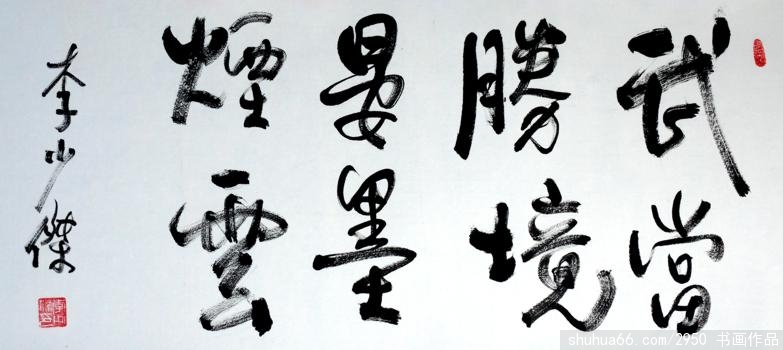 武當
勝境
晏墨
煙雲
李少傑
shuhua66.com/2950 书画作品